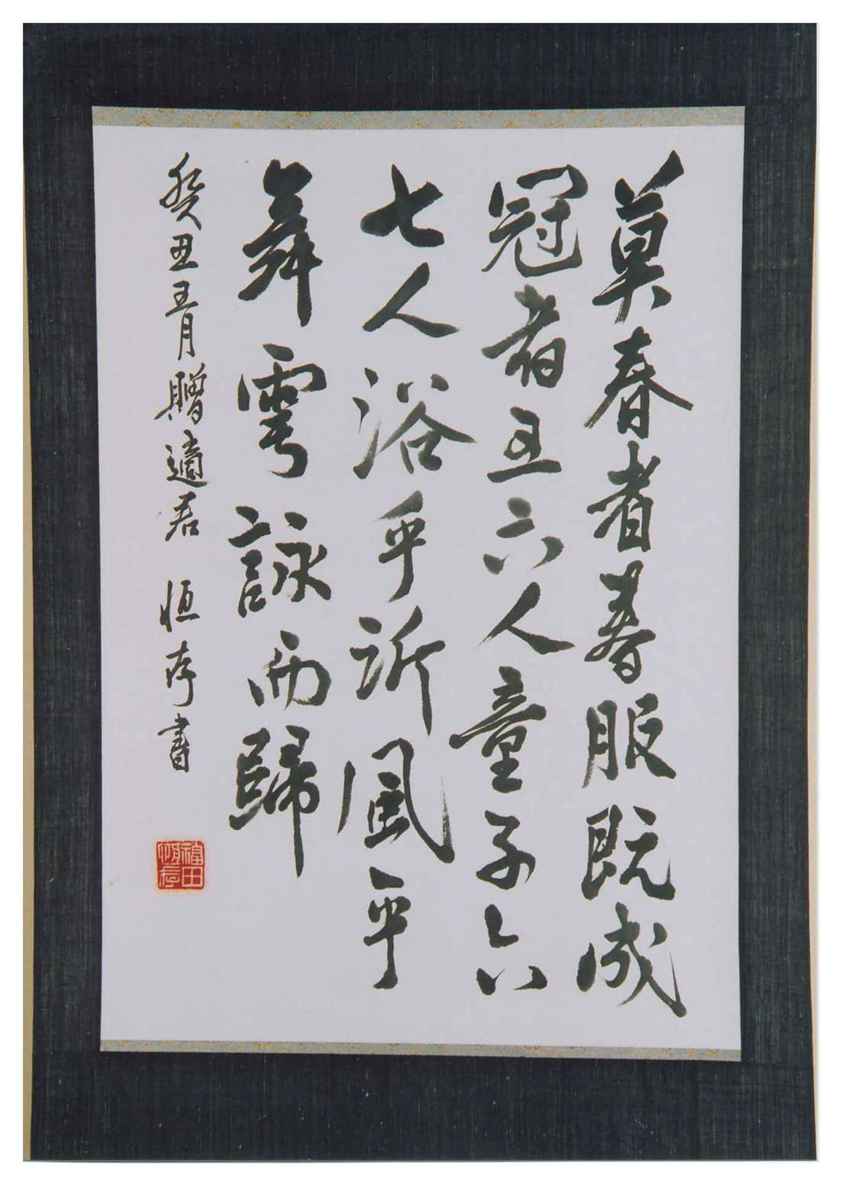 莫春者春服既成
冠者五六人童子六
七人浴乎沂風乎
舞雩詠而歸
癸丑五月贈適君 恒存書
福田恆存